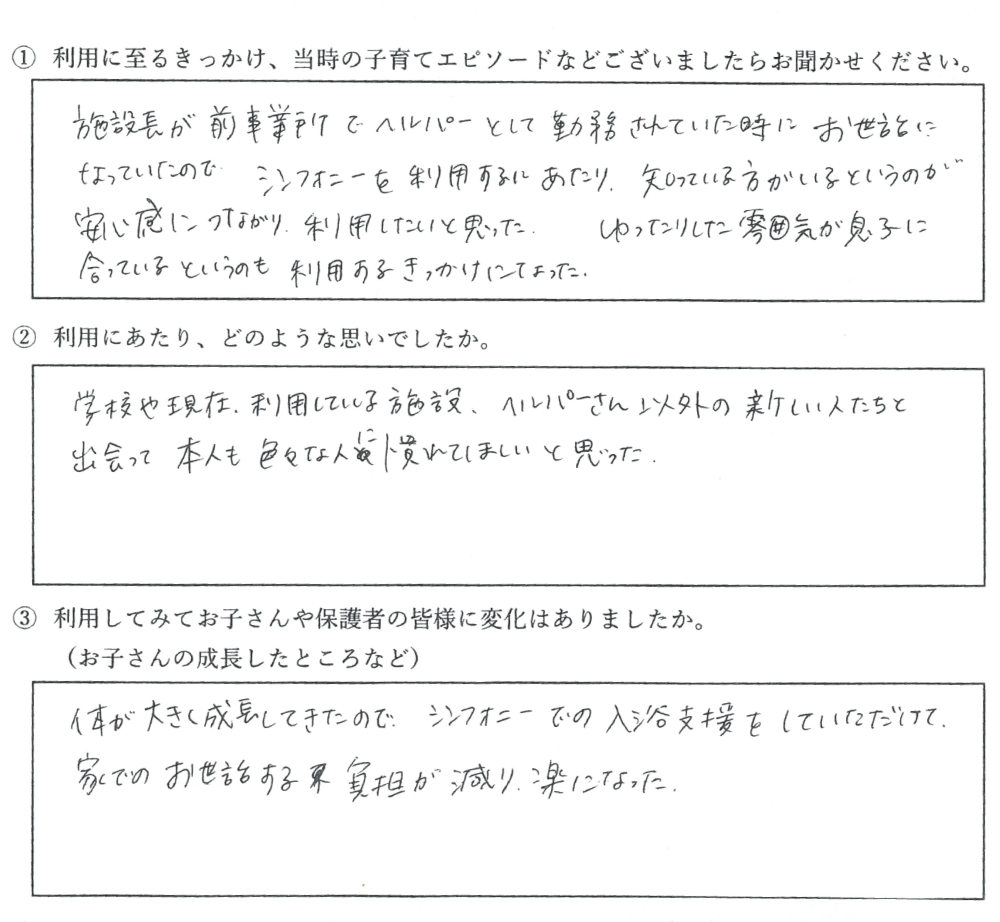 ① 利用に至るきっかけ、当時の子育てエピソードなどございましたらお聞かせください。
施設長が前事業所でヘルパーとして勤務されていた時にお世話に
なっていたので、シンフォニーを利用するにあたり、知っている方がいるというのが
安心感につながり、利用したいと思った。 ゆったりした雰囲気が息子に
合っているというのも利用するきっかけになった。
② 利用にあたり、どのような思いでしたか。
学校や現在、利用している施設、ヘルパーさん以外の新しい人たちと
出会って本人も色々な人に慣れてほしいと思った。
③ 利用してみてお子さんや保護者の皆様に変化はありましたか。
（お子さんの成長したところなど）
体が大きく成長してきたので、シンフォニーでの入浴支援をしていただけて、
家でのお世話する負担が減り、楽になった。